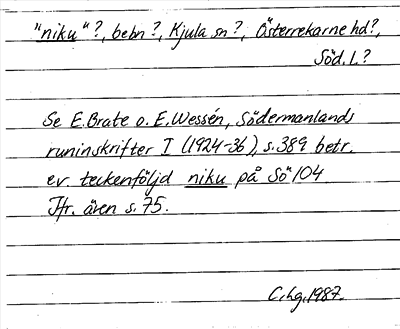 "niku"?, bebn?, Kjula sn?, Österrekarne hd?,
Söd. l.?
Se E. Brate o. E. Wessén, Södermanlands
runinskrifter I (1924-36), s. 389 betr.
ev. teckenföljd niku på Sö 104
Jfr. även s. 75.
C. hg. 1987.